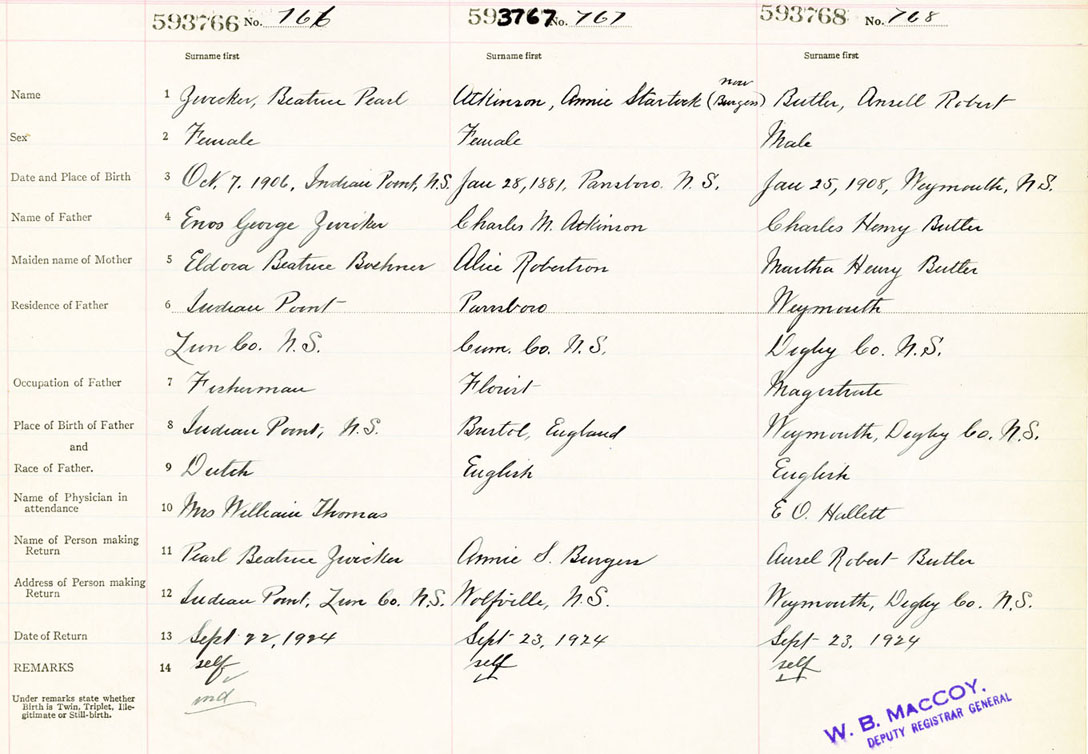 593766 No. 766 593767 No. 767 593768 No. 768
Surname first Surname first Surname first
now
Name 1 Zwicker, Beatrice Pearl Atkinson, Annie (Burgess) Butler, Ansell Robert
Sex 2 Female Female Male
Date and Place of Birth 3 Oct. 7. 1906, Indian Point, N.S. Jan 28, 1881, Parrsboro. N.S. Jan 25, 1908, Weymouth, N.S.
Name of Father 4 Enos George Zwicker Charles M. Atkinson Charles Henry Butler
Maiden name of Mother 5 Eldora Beatrice Boehner Alice Robertson Martha Henry Butler
Residence of Father 6 Indian Point Parrsboro Weymouth
Lun Co. N.S. Cum. Co. N.S. Digby Co. N.S.
Occupation of Father 7 Fisherman Florist Magistrate
Place of Birth of Father 8 Indian Point, N.S. Bristol, England Weymouth, Digby Co. N.S.
and
Race of Father. 9 Dutch English English
Name of Physician in
attendance 10 Mrs William Thomas E O. Hallett
Name of Person making
Return 11 Pearl Beatrice Zwicker Annie S. Burgess Ansel Robert Butler
Address of Person making
Return 12 Indian Point, Lun Co. N.S. Wolfville, N.S. Weymouth, Digby Co. N.S.
Date of Return 13 Sept 22, 1924 Sept 23, 1924 Sept 23, 1924
REMARKS 14 self self self
Under remarks state whether
Birth is Twin, Triplet, Ille-
gitimate or Still-birth.
W. B. MACCOY.
DEPUTY REGISTRAR GENERAL